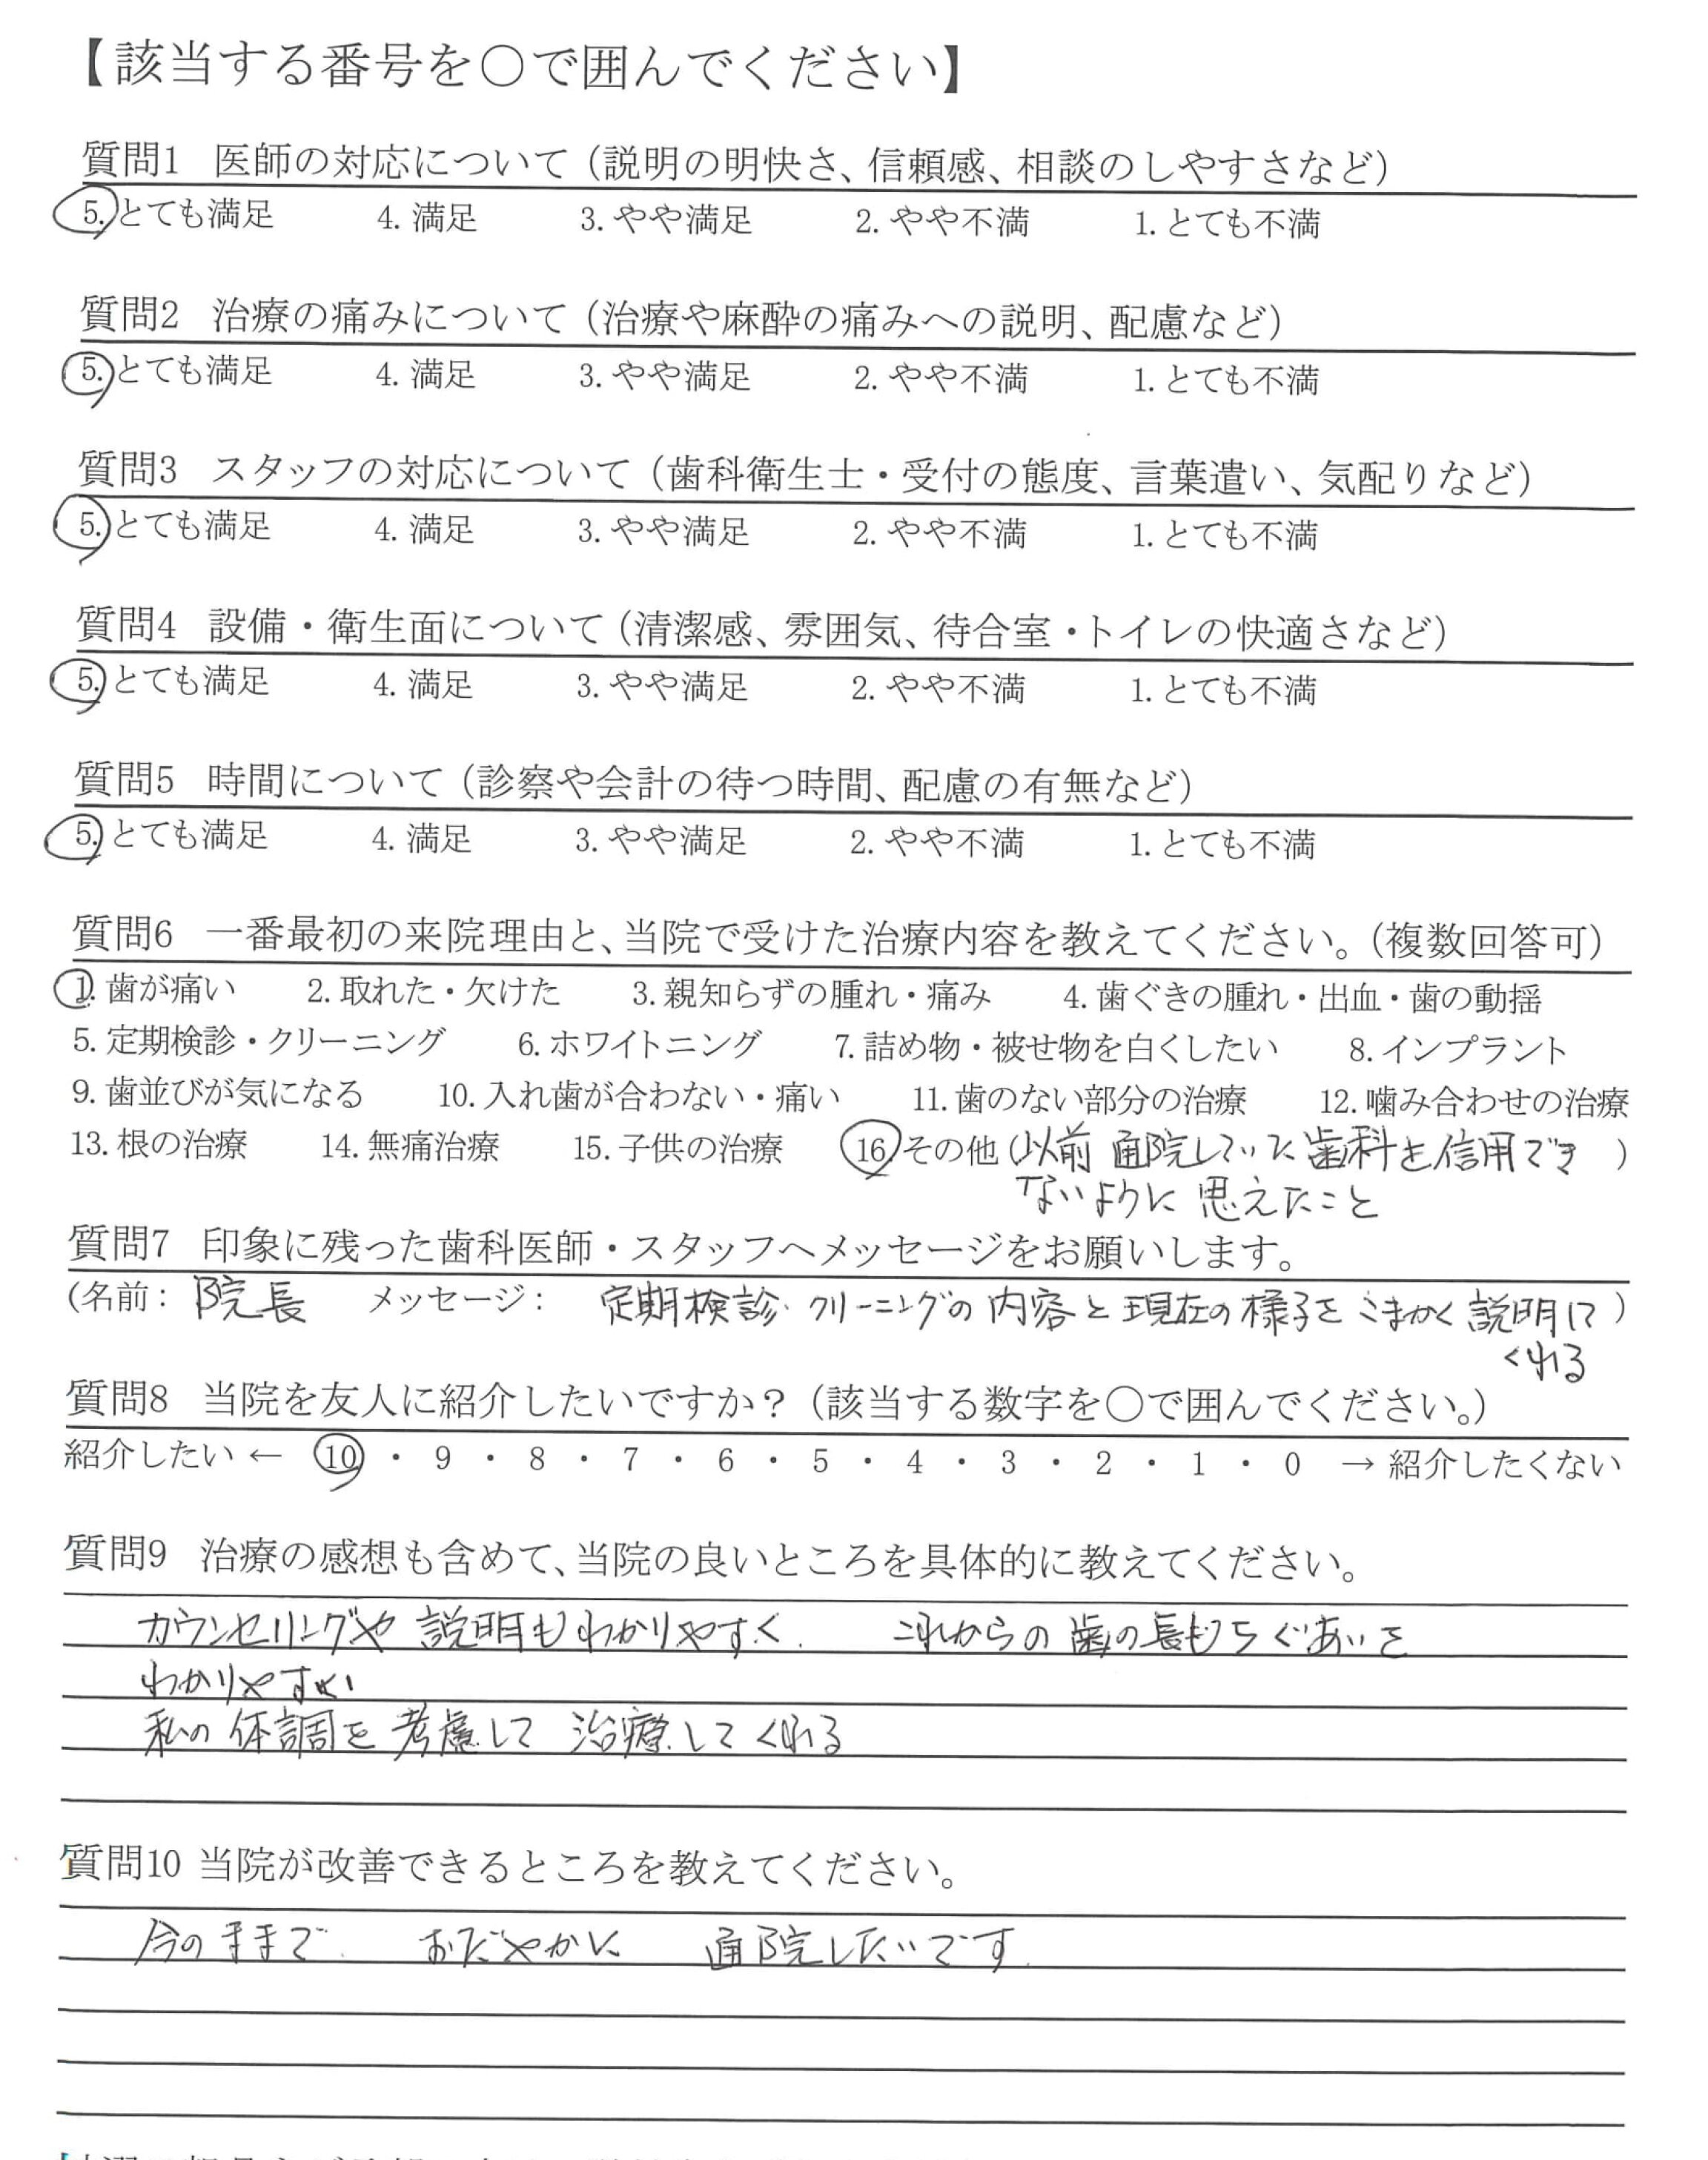 【該当する番号を〇で囲んでください】
質問1 医師の対応について（説明の明快さ、信頼感、相談のしやすさなど）
5.とても満足 4.満足 3.やや満足 2.やや不満 1.とても不満
質問2 治療の痛みについて（治療や麻酔の痛みへの説明、配慮など）
5.とても満足 4.満足 3.やや満足 2.やや不満 1.とても不満
質問3 スタッフの対応について（歯科衛生士・受付の態度、言葉遣い、気配りなど）
5.とても満足 4.満足 3.やや満足 2.やや不満 1.とても不満
質問4 設備・衛生面について（清潔感、雰囲気、待合室・トイレの快適さなど）
5.とても満足 4.満足 3.やや満足 2.やや不満 1.とても不満
質問5 時間について（診察や会計の待つ時間、配慮の有無など）
5.とても満足 4.満足 3.やや満足 2.やや不満 1.とても不満
質問6 一番最初の来院理由と、当院で受けた治療内容を教えてください。（複数回答可）
1.歯が痛い 2.取れた・欠けた 3.親知らずの腫れ・痛み 4.歯ぐきの腫れ・出血・歯の動揺
5.定期検診・クリーニング 6.ホワイトニング 7.詰め物・被せ物を白くしたい 8.インプラント
9.歯並びが気になる 10.入れ歯が合わない・痛い 11.歯のない部分の治療 12.噛み合わせの治療
13.根の治療 14.無痛治療 15.子供の治療 16.その他（以前通院していた歯科を信用でき）
ないように思えたこと
質問7 印象に残った歯科医師・スタッフへメッセージをお願いします。
（名前：院長 メッセージ：定期検診・クリーニングの内容と現在の様子をこまかく説明して）
くれる
質問8 当院を友人に紹介したいですか？（該当する数字を〇で囲んでください。）
紹介したい ← 10 ・ 9 ・ 8 ・ 7 ・ 6 ・ 5 ・ 4 ・ 3 ・ 2 ・ 1 ・ 0 → 紹介したくない
質問9 治療の感想も含めて、当院の良いところを具体的に教えてください。
カウンセリングや説明もわかりやすく、これからの歯の長もちぐあいを
わかりやすい
私の体調を考慮して治療してくれる
質問10 当院が改善できるところを教えてください。
今のままで おだやかに 通院したいです